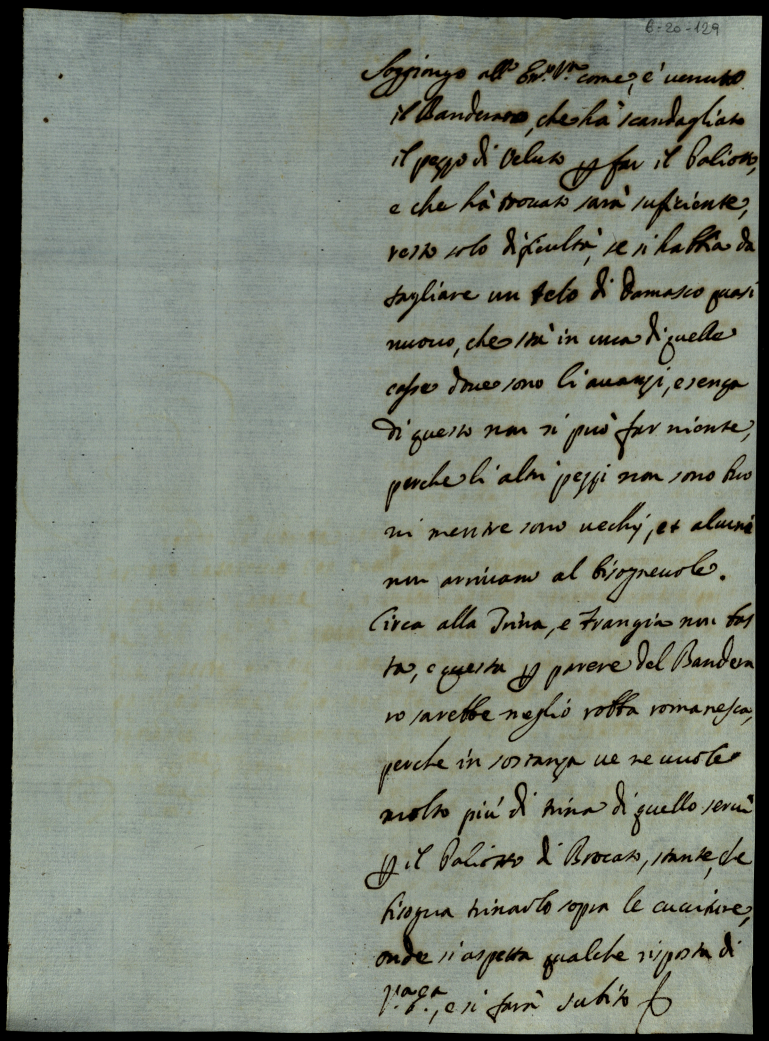 6-20-129
Soggiongo all' Em.ª V.ª come, è venuto
il Banderaro, che hà scandagliato
il pezzo di Veluto ꝑ far il Paliotto,
e che hà trovato sarà suficiente,
resta solo dificultà, se si habbia da
tagliare un telo di Damasco quasi
nuovo, che stà in una di quelle
casse dove sono li avanzi, e senza
di questo non si può far niente,
perche li altri pezzi non sono buo
ni mentre sono vechij, et alcuni
non arrivano al bisognevole.
Circa alla Trina, e Frangia non bas
ta, e questa ꝑ parere del Bandera
ro sarebbe meglio robba romanesca,
perche in sostanza ve ne vuole
molto più di trina di quello servì
ꝑ il Paliotto di Brocato, stante, che
bisogna trinarlo sopra le cuciture,
onde si aspetta qualche risposta di
e si farà subito